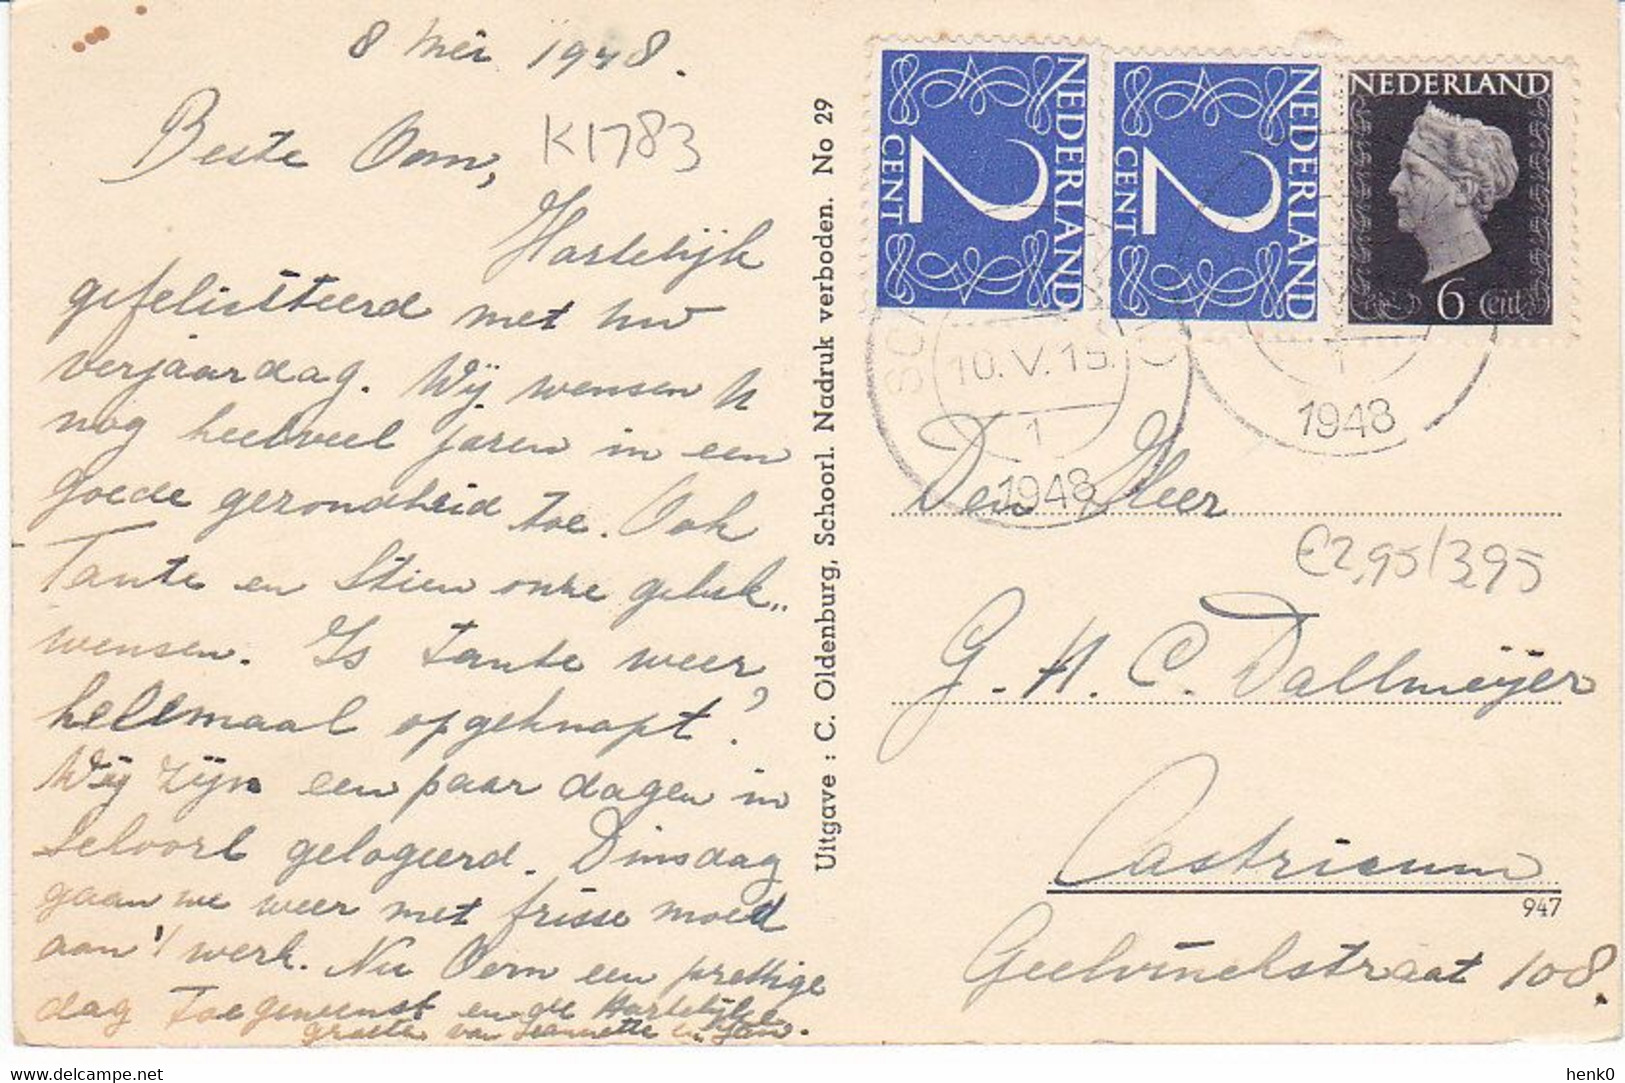 8 Mei 1948.
Beste Oom,
K1783
Hartelijk
gefeliciteerd met uw
verjaardag. Wij wensen U
nog heelveel jaren in een
goede gezondheid toe. Ook
Tante en Stien onze geluk„
wensen. Is Tante weer
hellemaal opgeknapt?
Wij zijn een paar dagen in
Schoorl gelogeerd. Dinsdag
gaan we weer met frisse moed
aan 't werk. Nu Oom een prettige
dag toegewenst en de Hartelijke
groeten van Jeannette en Jan.
Uitgave : C. Oldenburg, Schoorl. Nadruk verboden. No 29
NEDERLAND
2
CENT
NEDERLAND
2
CENT
NEDERLAND
6 Cent
10.V.15.
1
1948
1
1948
Den Heer
€2,95/3,95
G. H. C. Dallmeijer
Castricum
947
Geelvinckstraat 108.
delcampe.net
henk0